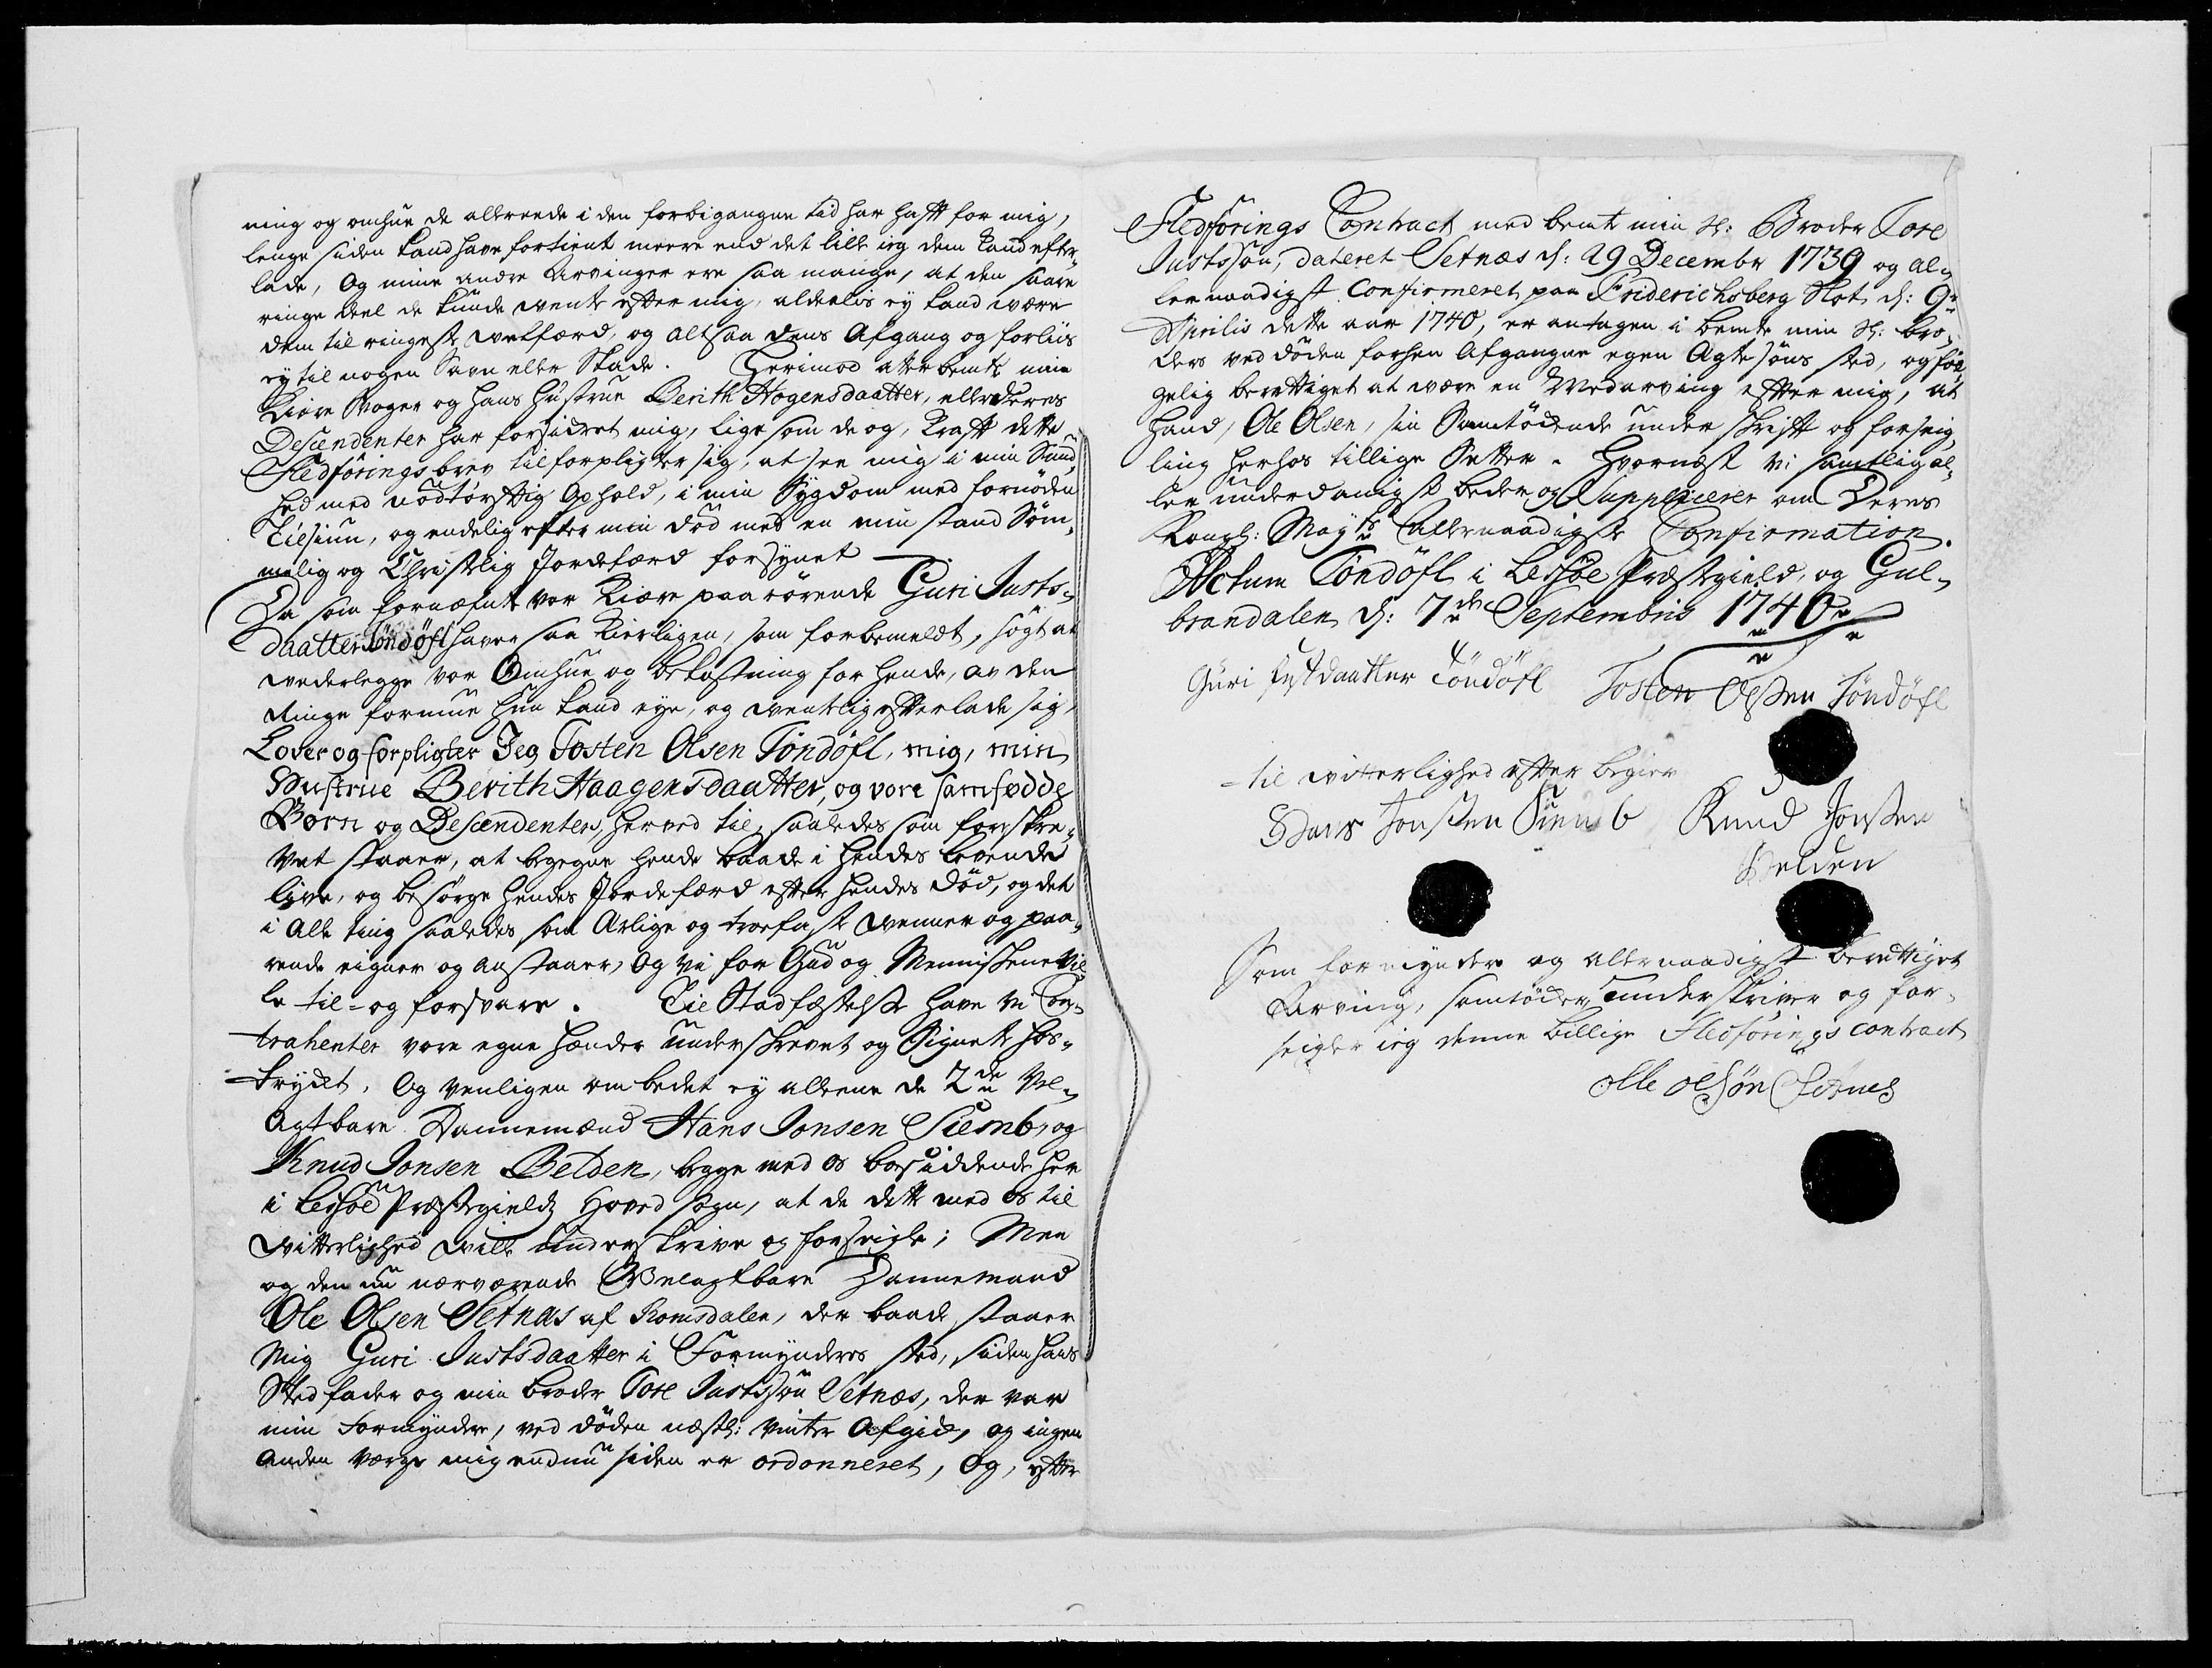 ning og omhue de allereede i den forbigangne tid har hafft for mig,
lenge siden kand have fortient meere end det lille ieg dem kand efter¬
lade, Og mine andre Arvinger ere saa mange, at den saare
ringe deel de kunde vente effter mig, aldeelis ey kand være
dem til ringeste welfærd, og altsaa dens Afgang og forliis
ey til nogen Savn eller Skade. Herimod atter bemte min
Kiære Svoger og hans hustrue Berith Hogensdaatter, eller deres
Descendenter har forsicret mig, lige som de og, krafft dette
Fledførings brev tilforpligter sig, at see mig i min Sund¬
hed med nødtørfftig Ophold, i min Sygdom med fornøden
Tilsiun, og endelig efter min død med en min stand Søm¬
melig og Christelig Jordefærd forsynet
Da som fornæfnte vor Kiære paarørende Guri Justs¬
daatter Tøndøfl haver saa kierligen, som forbemeldt, søgt at
vederlegge vor Omhue og bekostning for hende, av den
Ringe formue hun kand eye, og ventelig effterlade sig,
Lover og forpligter Jeg Tosten Olsen Tøndøfl, mig, min
Hustrue Berith Haagensdaatter, og vore samfødde
Børn og Descendenter, herved til, saaledes som foreskre¬
vet staaer, at begegne hende baade i hendes levende
live, og besørge hendes Jordefærd effter hendes død, og det
i Alle ting saaledes som Ærlige og troefaste venner og paarø¬
rende eigner og anstaaer, Og vi for Gud og Mennisskene vil¬
le til- og forsvare. Til Stadfæstelse have vi Con¬
trahenter vore egne hænder underskrevet og Signete hos¬
trykt, Og venligen ombedet ey alleene de 2de Vel¬
Agtbare Dannemænd Hans Jonsen Siemb, og
Knud Jonsen Belden, begge med os boesiddende her
i Lessøe Præstegields Hoved sogn, at de dette med os til
Vitterlighed ville underskrive og forseigle; Men
og den nu nærværende Velagtbare Dannemand
Ole Olsen Setnæs af Romsdalen, der baade staaer
Mig Guri Justsdaatter i Formynders sted, siden hans
Stedfader og min broder Tore Justssøn Setnæs, der var
min Formynder, ved døden næstl: vinter Afgik, og ingen
anden værge mig endnu siden er ordonneret, Og, effter
Fledførings Contract med bemte min Sl: Broder Tore
Justssøn, dateret Setnæs d: 29 Decembr 1739 og al¬
lernaadigst Confirmeret paa Friderichsberg Slot d: 9de
Aprilis dette aar 1740, er antagen i bemte min Sl: bro¬
ders ved døden forhen Afgangne egen Ægte søns sted, og føl¬
gelig berettiget at være en Medarving effter mig, at
hand, Ole Olsen, sin Samtøckende under skrifft og forseig¬
ling herhos tillige Setter. Hvornæst vi samtlig al¬
ler underdanigst beder og Supplicerer om Deres
Kongl: Mayts allernaadigste Confirmation.
Actum Tøndøfl i Lessøe Præstegield, og Gul¬
brandalen d: 7de Septembris 1740
Guri Justdaatter Tøndøfl Tosten Olssen Tøndøfl
til vitterlighed effter begier
Hans Jonssen Siemb Knud Jonssen
Belden
Som formynder og allernaadigst berettiget
Arving, samtøcker, underskriver og for¬
seigler ieg denne billige Fledførings contract
olle olssøn Setnes